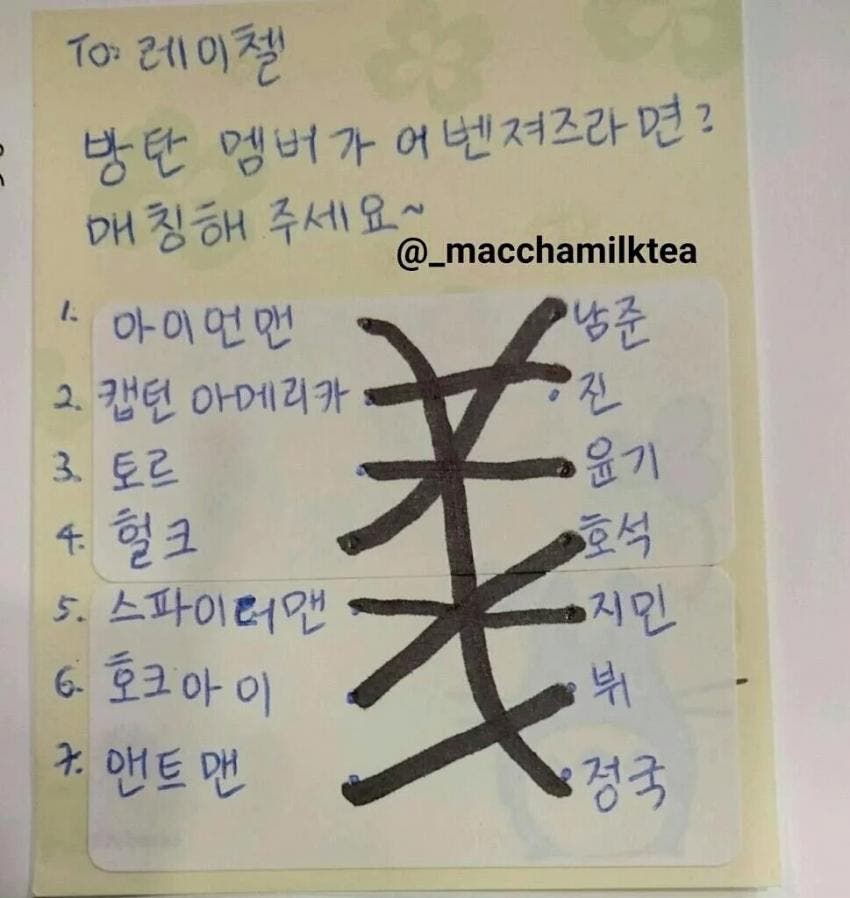 To: 레이첼
방탄 멤버가 어벤져즈라면?
매칭해 주세요~
@_macchamilktea
1. 아이언맨 남준
2. 캡턴 아메리카 진
3. 토르 윤기
4. 헐크 호석
5. 스파이더맨 지민
6. 호크아이 뷔
7. 앤트맨 정국